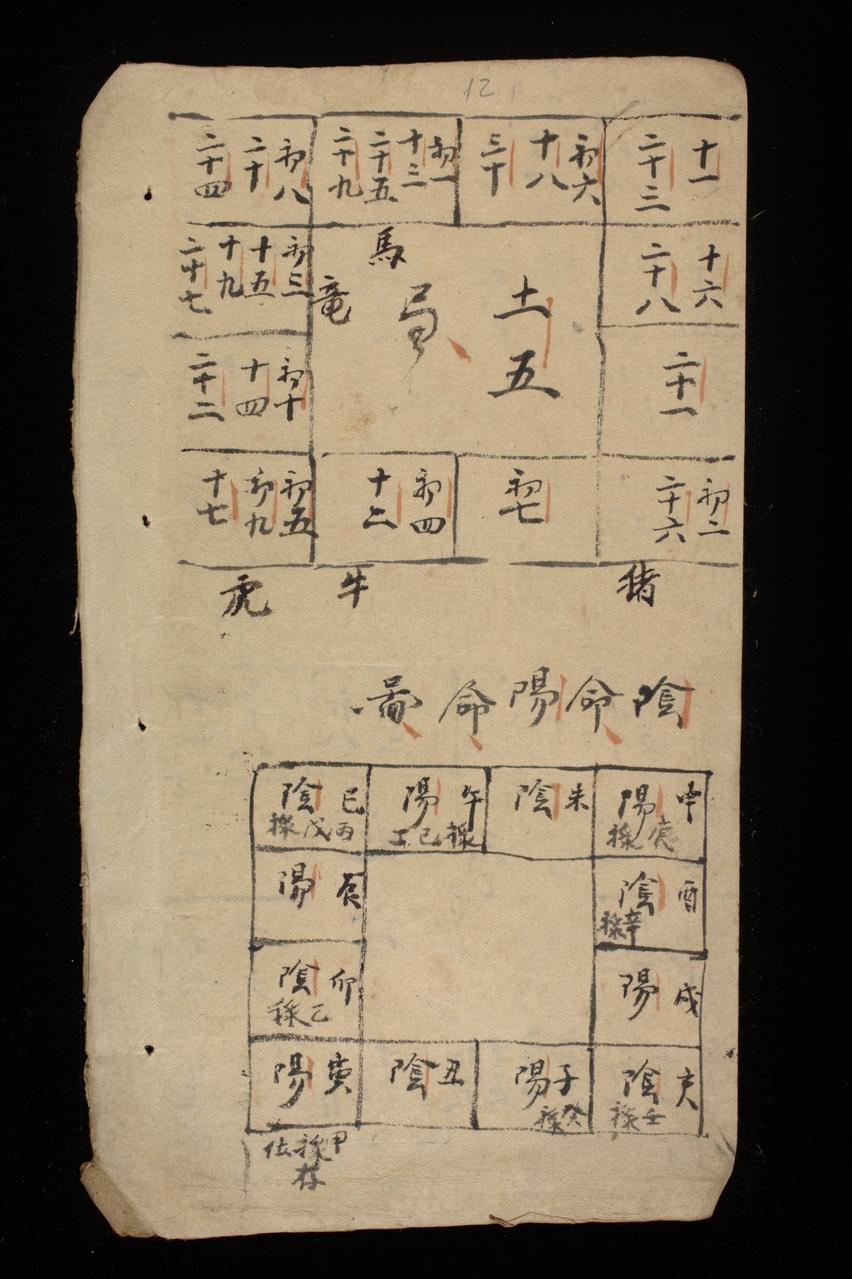 12
十一
二十三
初六
十八
三十
初一
十三
二十五
二十九
初八
二十
二十四
十六
二十八
土五
局
馬
竜
初三
十五
十九
二十七
二十一
初十
十四
二十二
初二
二十六
初七
初四
十二
初五
初九
十七
猪
牛
虎
陰命陽命圖
申
陽
庚祿
未
陰
午
陽
丁己祿
巳
陰
丙戊祿
酉
陰
辛祿
辰
陽
戌
陽
卯
陰
乙祿
亥
陰
壬祿
子
陽
癸祿
丑
陰
寅
陽
甲祿
存